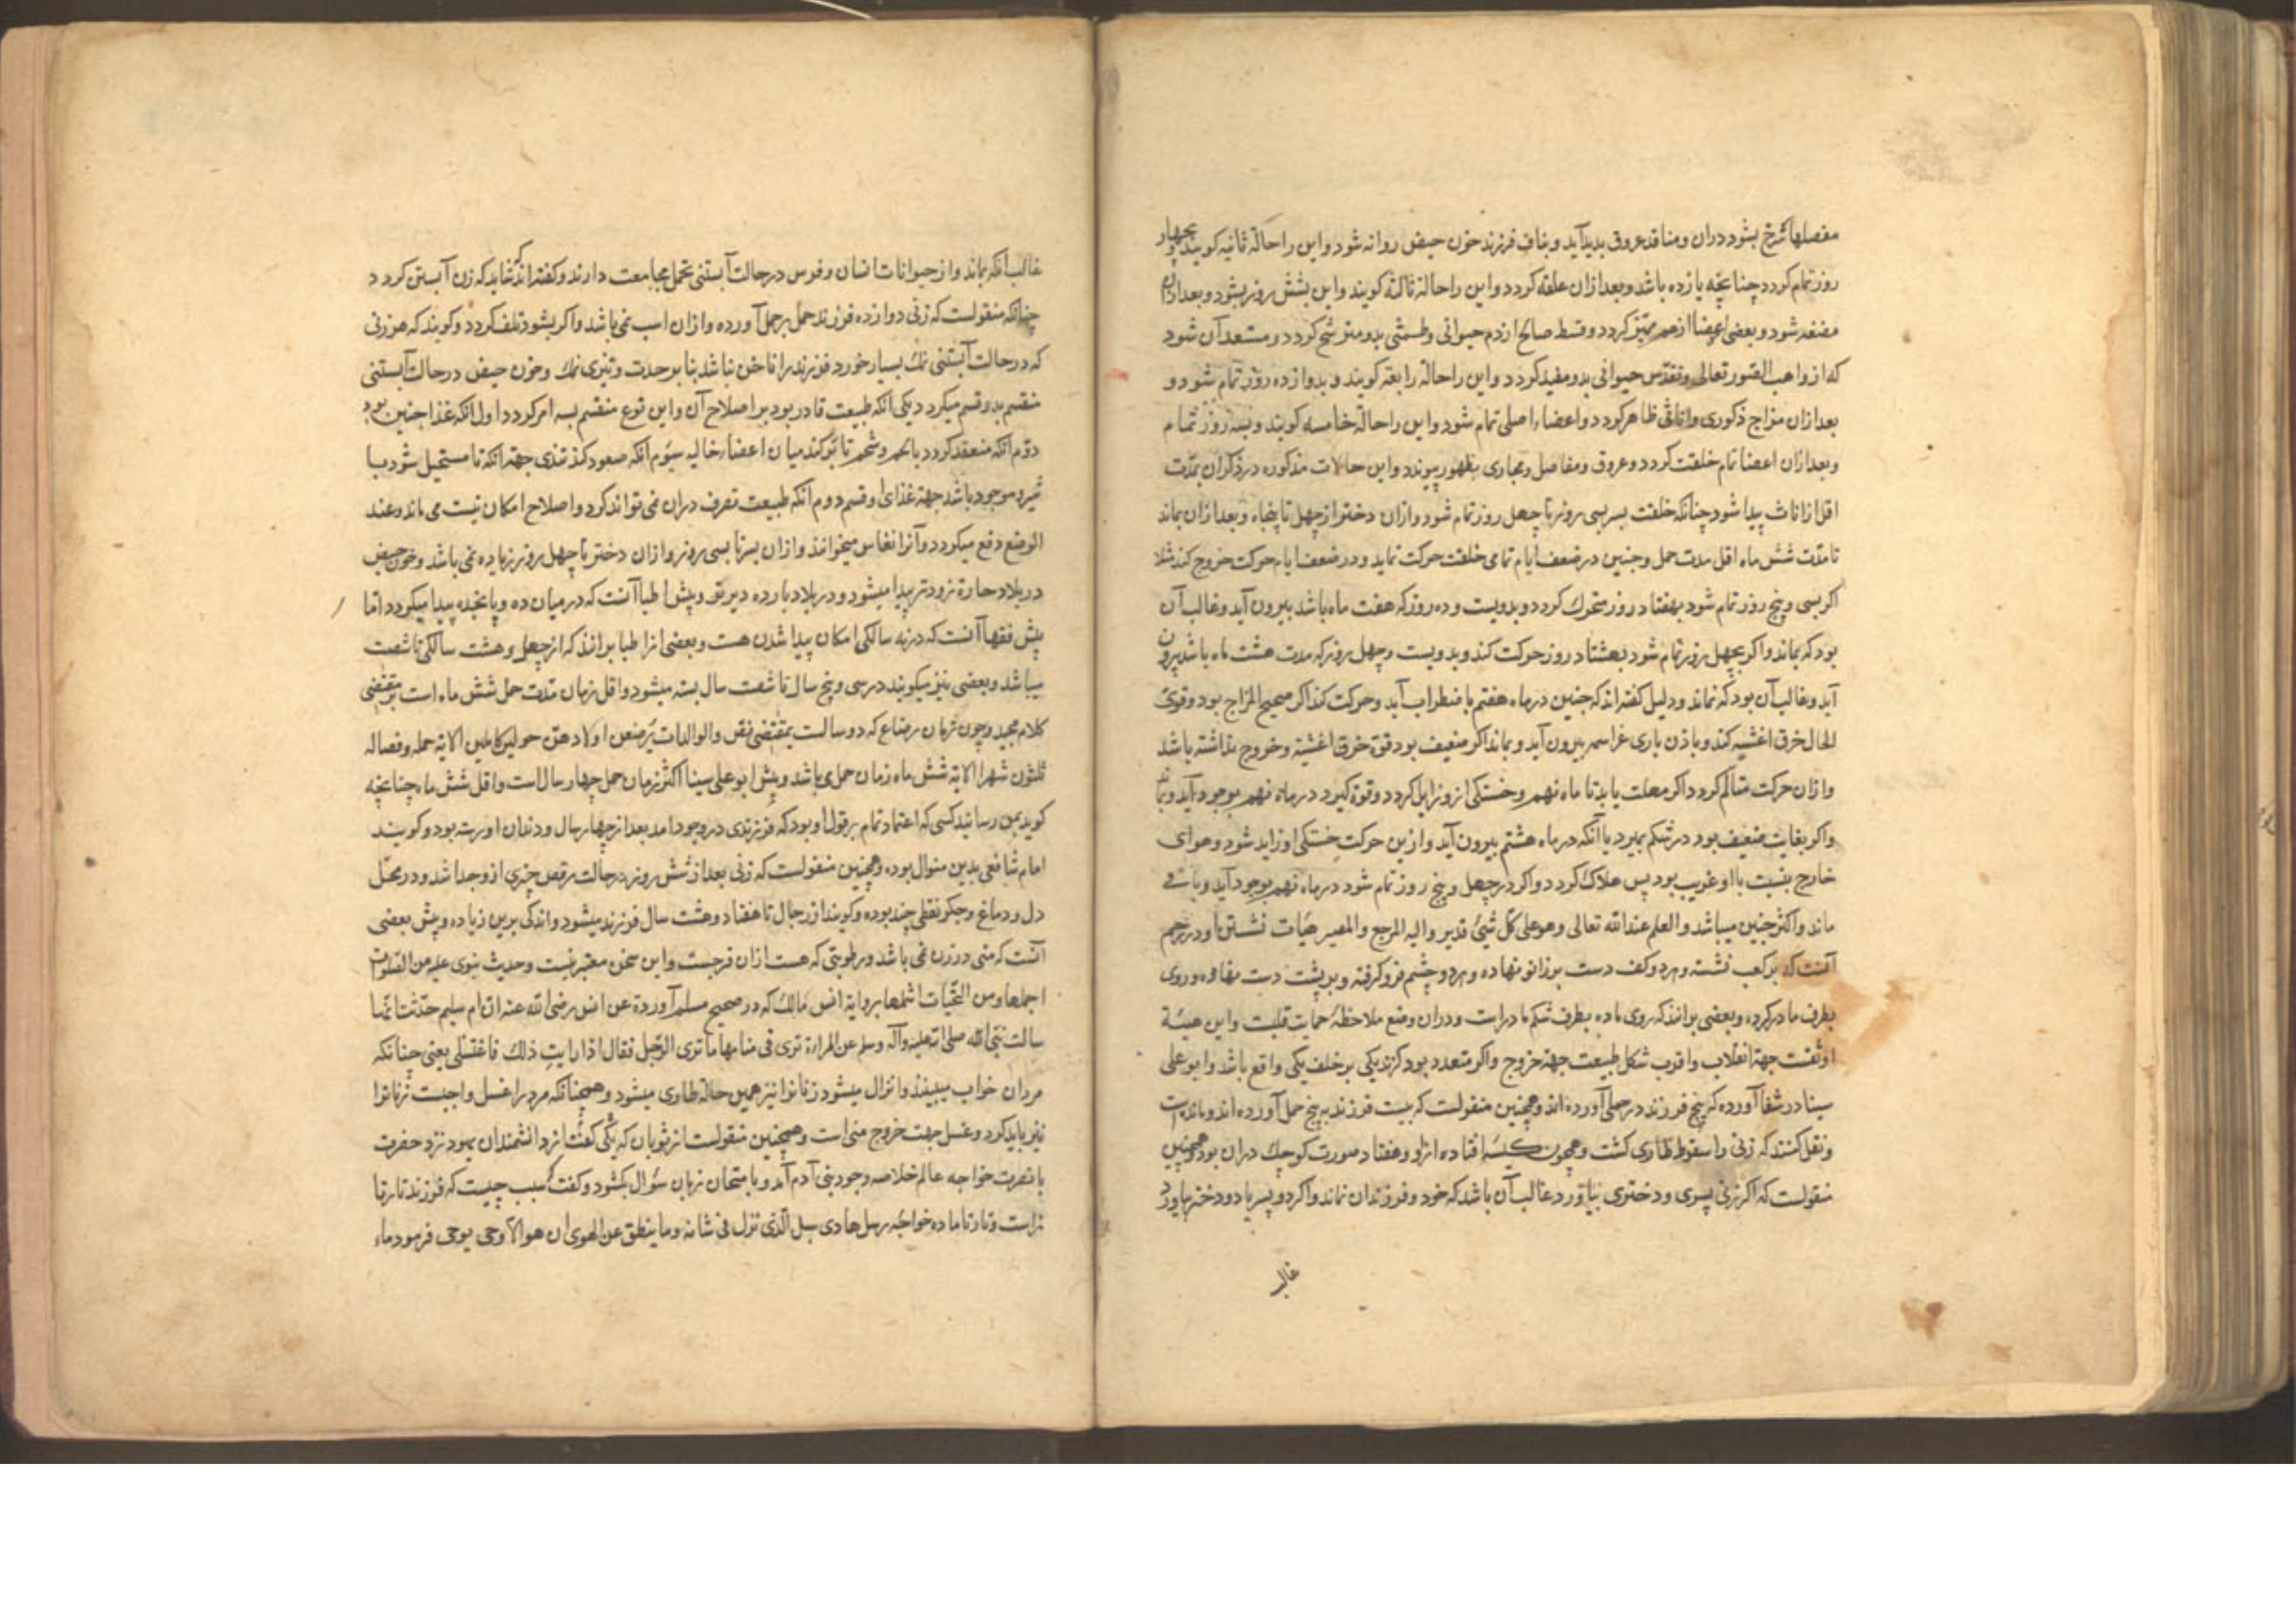 مفصلها سرخ بشود دران ومنافذ عروق بدید آید وبناف فرزند خون حیض روانه شود واین را حالة ثانیه کویند وبچهار
روز تمام کردد چنانچه یازده باشد وبعد ازان علقه کردد واین را حالة ثالثه کویند واین بشش روز بشود وبعد ازان
مضغه شود وبعضی اعضا از هم ممیّز کردد وقسط صالح از دم حیوانی وطمثی بدو مترشح کردد ومستعد آن شود
که از واهب الصّور تعالی وتقدّس حیوانی بدو مفید کردد واین را حالة رابعه کویند وبدوازده روز تمام شود و
بعد ازان مزاج ذکوری واناثی ظاهر کردد واعضاء اصلی تمام شود واین را حالة خامسه کویند وبسه روز تمام
وبعد ازان اعضا تمام خلقت کردد وعروق ومفاصل ومجاری بظهور پیوندد واین حالات مذکوره در ذکران بمدّت
اقل از اناث پیدا شود چنانکه خلقت پسر بسی روز تا چهل روز تمام شود وازان دختر از چهل تا پنجاه وبعد ازان بماند
تا مدّت شش ماه اقل مدت حمل وجنین در ضعف ایام تمامی خلقت حرکت نماید ودر ضعف ایام حرکت خروج کند مثلا
اکر بسی وپنج روز تمام شود بهفتاد روز متحرك کردد وبدویست وده روز که هفت ماه باشد بیرون آید وغالب آن
بود که بماند واکر بچهل روز تمام شود بهشتاد روز حرکت کند وبدویست وچهل روز که مدت هشت ماه باشد بیرون
آید وغالب آن بود که نماند ودلیل کفته اند که جنین در ماه هفتم باضطراب آید وحرکت کند اکر صحیح المزاج بود وقوی
الحال خرق اغشیه کند وباذن باری عزّ اسمه بیرون آید وبماند اکر ضعیف بود قوّت خرق اغشیة وخروج نداشته باشد
وازان حرکت متالّم کردد اکر مهلت یابد تا ماه نهم وخستکی ازو زایل کردد وقوّة کیرد در ماه نهم بوجود آید وبماند
واکر بغایت ضعیف بود در شکم بمیرد یا آنکه در ماه هشتم بیرون آید وازین حرکت خستکی او زاید شود وهوای
خارج بنسبت با او غریب بود پس هلاك کردد واکر در چهل وپنج روز تمام شود در ماه نهم بوجود آید وباقی
ماند واکثر چنین میباشد والعلم عند الله تعالی وهو علی کلّ شیء قدیر والیه المرجع والمصیر هیات نشستن او در رحم
آنست که بر کعب نشسته وهر دو کف دست بر زانو نهاده وهر دو چشم فرو کرفته وبر پشت دست نهاده وروی
بطرف مادر کرده وبعضی برانند که روی ماده بطرف شکم مادرست ودران وضع ملاحظهٔ حمایت قلبست واین هیئة
اوثقست جهة انقلاب واقرب شکل طبیعت جهة خروج واکر متعدد بود کزند یکی بر خلف یکی واقع باشد وابو علی
سینا در شفا آورده که پنج فرزند در حملی آورده اند وهمچنین منقولست که بیست فرزند به پنج حمل آورده اند ومانده است
ونقل کنند که زنی را سقوط طاری کشت وهمچون کیسه افتاده ازو وهفتاد صورت کوچك دران بود وهمچنین
منقولست که اکر زنی پسری ودختری بیاورد غالب آن باشد که خود وفرزندان نماند واکر دو پسر یا دو دختر بیاورد
غالب
غالب آنکه بماند واز حیوانات انسان وفرس در حالت آبستنی تحمل مجامعت دارند وکفته اند که شاید که زن آبستن کردد
چنانکه منقولست که زنی دوازده فرزند حمل بر حمل آورده وازان اسب نمی باشد واکر بشود تلف کردد وکویند که هر زنی
که در حالت آبستنی نمك بسیار خورد فرزند را ناخن نباشد بنا بر حدت وتیزی نمك وخون حیض در حالت آبستنی
منقسم بدو قسم میکردد یکی آنکه طبیعت قادر بود بر اصلاح آن واین نوع منقسم بسه امر کردد اول آنکه غذا جنین بود
دوّم آنکه منعقد کردد بالحم وشحم تا پر کند میان اعضاء خالیه سیّوم آنکه صعود کند بثدی جهة آنکه تا مستحیل شود با
شیر وموجود باشد جهة غذای او قسم دوم آنکه طبیعت تصرف دران نمی تواند کرد واصلاح امکان نیست می ماند وعند
الوضع دفع میکردد وآنرا نفاس میخوانند وازان پسر تا بسی روز وازان دختر تا چهل روز زیاده نمی باشد وخون حیض
در بلاد حارة زودتر پیدا میشود ودر بلاد بارده دیرتر وپیش اطبا آنست که در میان ده وپانجده پیدا میکردد امّا
پیش فقها آنست که در نه سالکی امکان پیدا شدن هست وبعضی از اطبا برانند که از چهل وهشت سالکی تا شصت
میباشد وبعضی نیز میکویند در سی وپنج سال تا شصت سال بسته میشود واقل زمان مدّت حمل شش ماه است بر مقتضی
کلام مجید وچون زمان رضاع که دو سالست بمقتضی نصّ والوالدات یرضعن اولادهنّ حولین کاملین الایة حمله وفصاله
ثلثون شهرا الایة شش ماه زمان حمل می باشد وپیش ابو علی سینا اکثر زمان حمل چهار سال است واقل شش ماه چنانچه
کوید بمن رسانید کسی که اعتماد تمام بر قول او بود که فرزندی در وجود آمد بعد از چهار سال ودندان او رسته بود وکویند
امام شافعی بدین منوال بوده وهمچنین منقولست که زنی بعد از شش روز در حالت رقص چیزی ازو جدا شد ودر محلّ
دل ودماغ وجکر نقطی چند بوده وکویند از رجال تا هفتاد وهشت سال فرزند میشود واندکی برین زیاده وپیش بعضی
آنست که منی در زن نمی باشد ورطوبتی که هست ازان فرجست واین سخن معتبر نیست وحدیث نبوی علیه من الصّلوات
اجملها ومن التحیّات اشملها بروایة انس مالك که در صحیح مسلم آورده عن انس رضی الله عنه ان ام سلیم حدّثت انّها
سالت نبیّ الله صلی الله علیه وآله وسلم عن المراءة تری فی منامها ما تری الرّجل فقال اذا رایتِ ذلك فاغتسلی یعنی چنانکه
مردان خواب میبینند وانزال میشود زنانرا نیز همین حالة طاری میشود وهمچنانکه مرد را غسل واجبست زنانرا
نیز باید کرد وغسل جهت خروج منی است وهمچنین منقولست از ثوبان که یکی کفت از دانشمندان یهود نزد حضرت
با نصرت خواجه عالم خلاصه وجود بنی آدم آمد وبامتحان زبان سؤال بکشود وکفت سبب چیست که فرزند تارة
نراست وتارتا ماده خواجه رسل هادی سبل الّذی نزل فی شانه وما ینطق عن الهوی ان هو الا وحی یوحی فرمود ماء